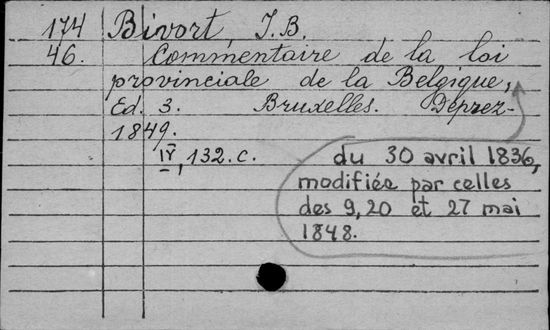 174 Bivort, J.B.
46. Commentaire de la loi
provinciale de la Belgique,
Ed. 3. Bruxelles. Deprez-
1849.
IV, 132. c.
du 30 avril 1836,
modifiée par celles
des 9, 20 et 27 mai
1848.